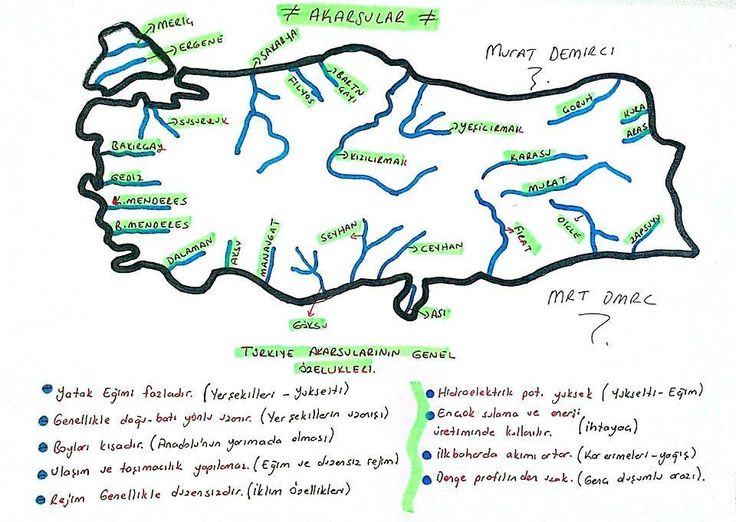 ≠ AKARSULAR ≠
MERİÇ
ERGENE
SAKARYA
FİLYOS
BARTIN
ÇAYI
MURAT DEMİRCİ
ÇORUH
KURA
ARAS
SUSURLUK
YEŞİLIRMAK
BAKIRÇAY
KIZILIRMAK
KARASU
GEDİZ
MURAT
K. MENDERES
B. MENDERES
DİCLE
FIRAT
ZAPSUYU
DALAMAN
AKSU
MANAVGAT
SEYHAN
CEYHAN
GÖKSU
ASİ
MRT DMRC
TÜRKİYE AKARSULARININ GENEL
ÖZELLİKLERİ.
Yatak Eğimi fazladır. (Yerşekilleri - Yükselti)
Genellikle doğu-batı yönlü uzanır. (Yerşekillerin uzanışı)
Boyları kısadır. (Anadolu'nun yarımada olması)
Ulaşım ve taşımacılık yapılamaz. (Eğim ve düzensiz rejim)
Rejim Genellikle düzensizdir. (İklim özellikleri)
Hidroelektrik pot. yüksek (Yükselti - Eğim)
En çok sulama ve enerji
üretiminde kullanılır. (ihtiyaç)
İlkbaharda akımı artar. (Kar erimeleri - yağış)
Denge profilinden uzak. (Genç oluşumlu arazi).